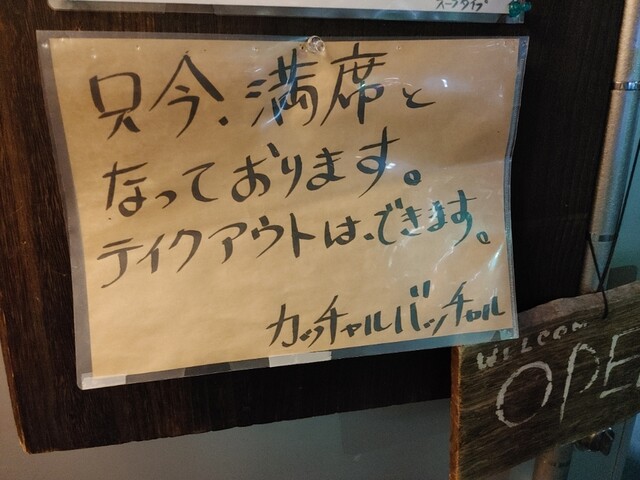 只今、満席と
なっております。
テイクアウトは、できます。
カッチャルバッチャル
WELCOM
OPE